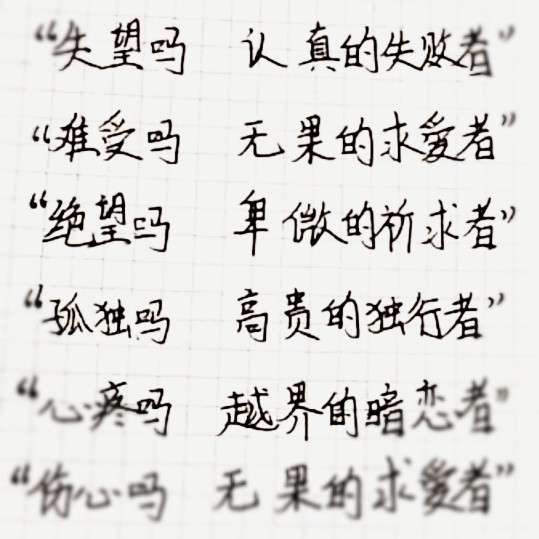 “失望吗 认真的失败者”
“难受吗 无果的求爱者”
“绝望吗 卑微的祈求者”
“孤独吗 高贵的独行者”
“心疼吗 越界的暗恋者”
“伤心吗 无果的求爱者”